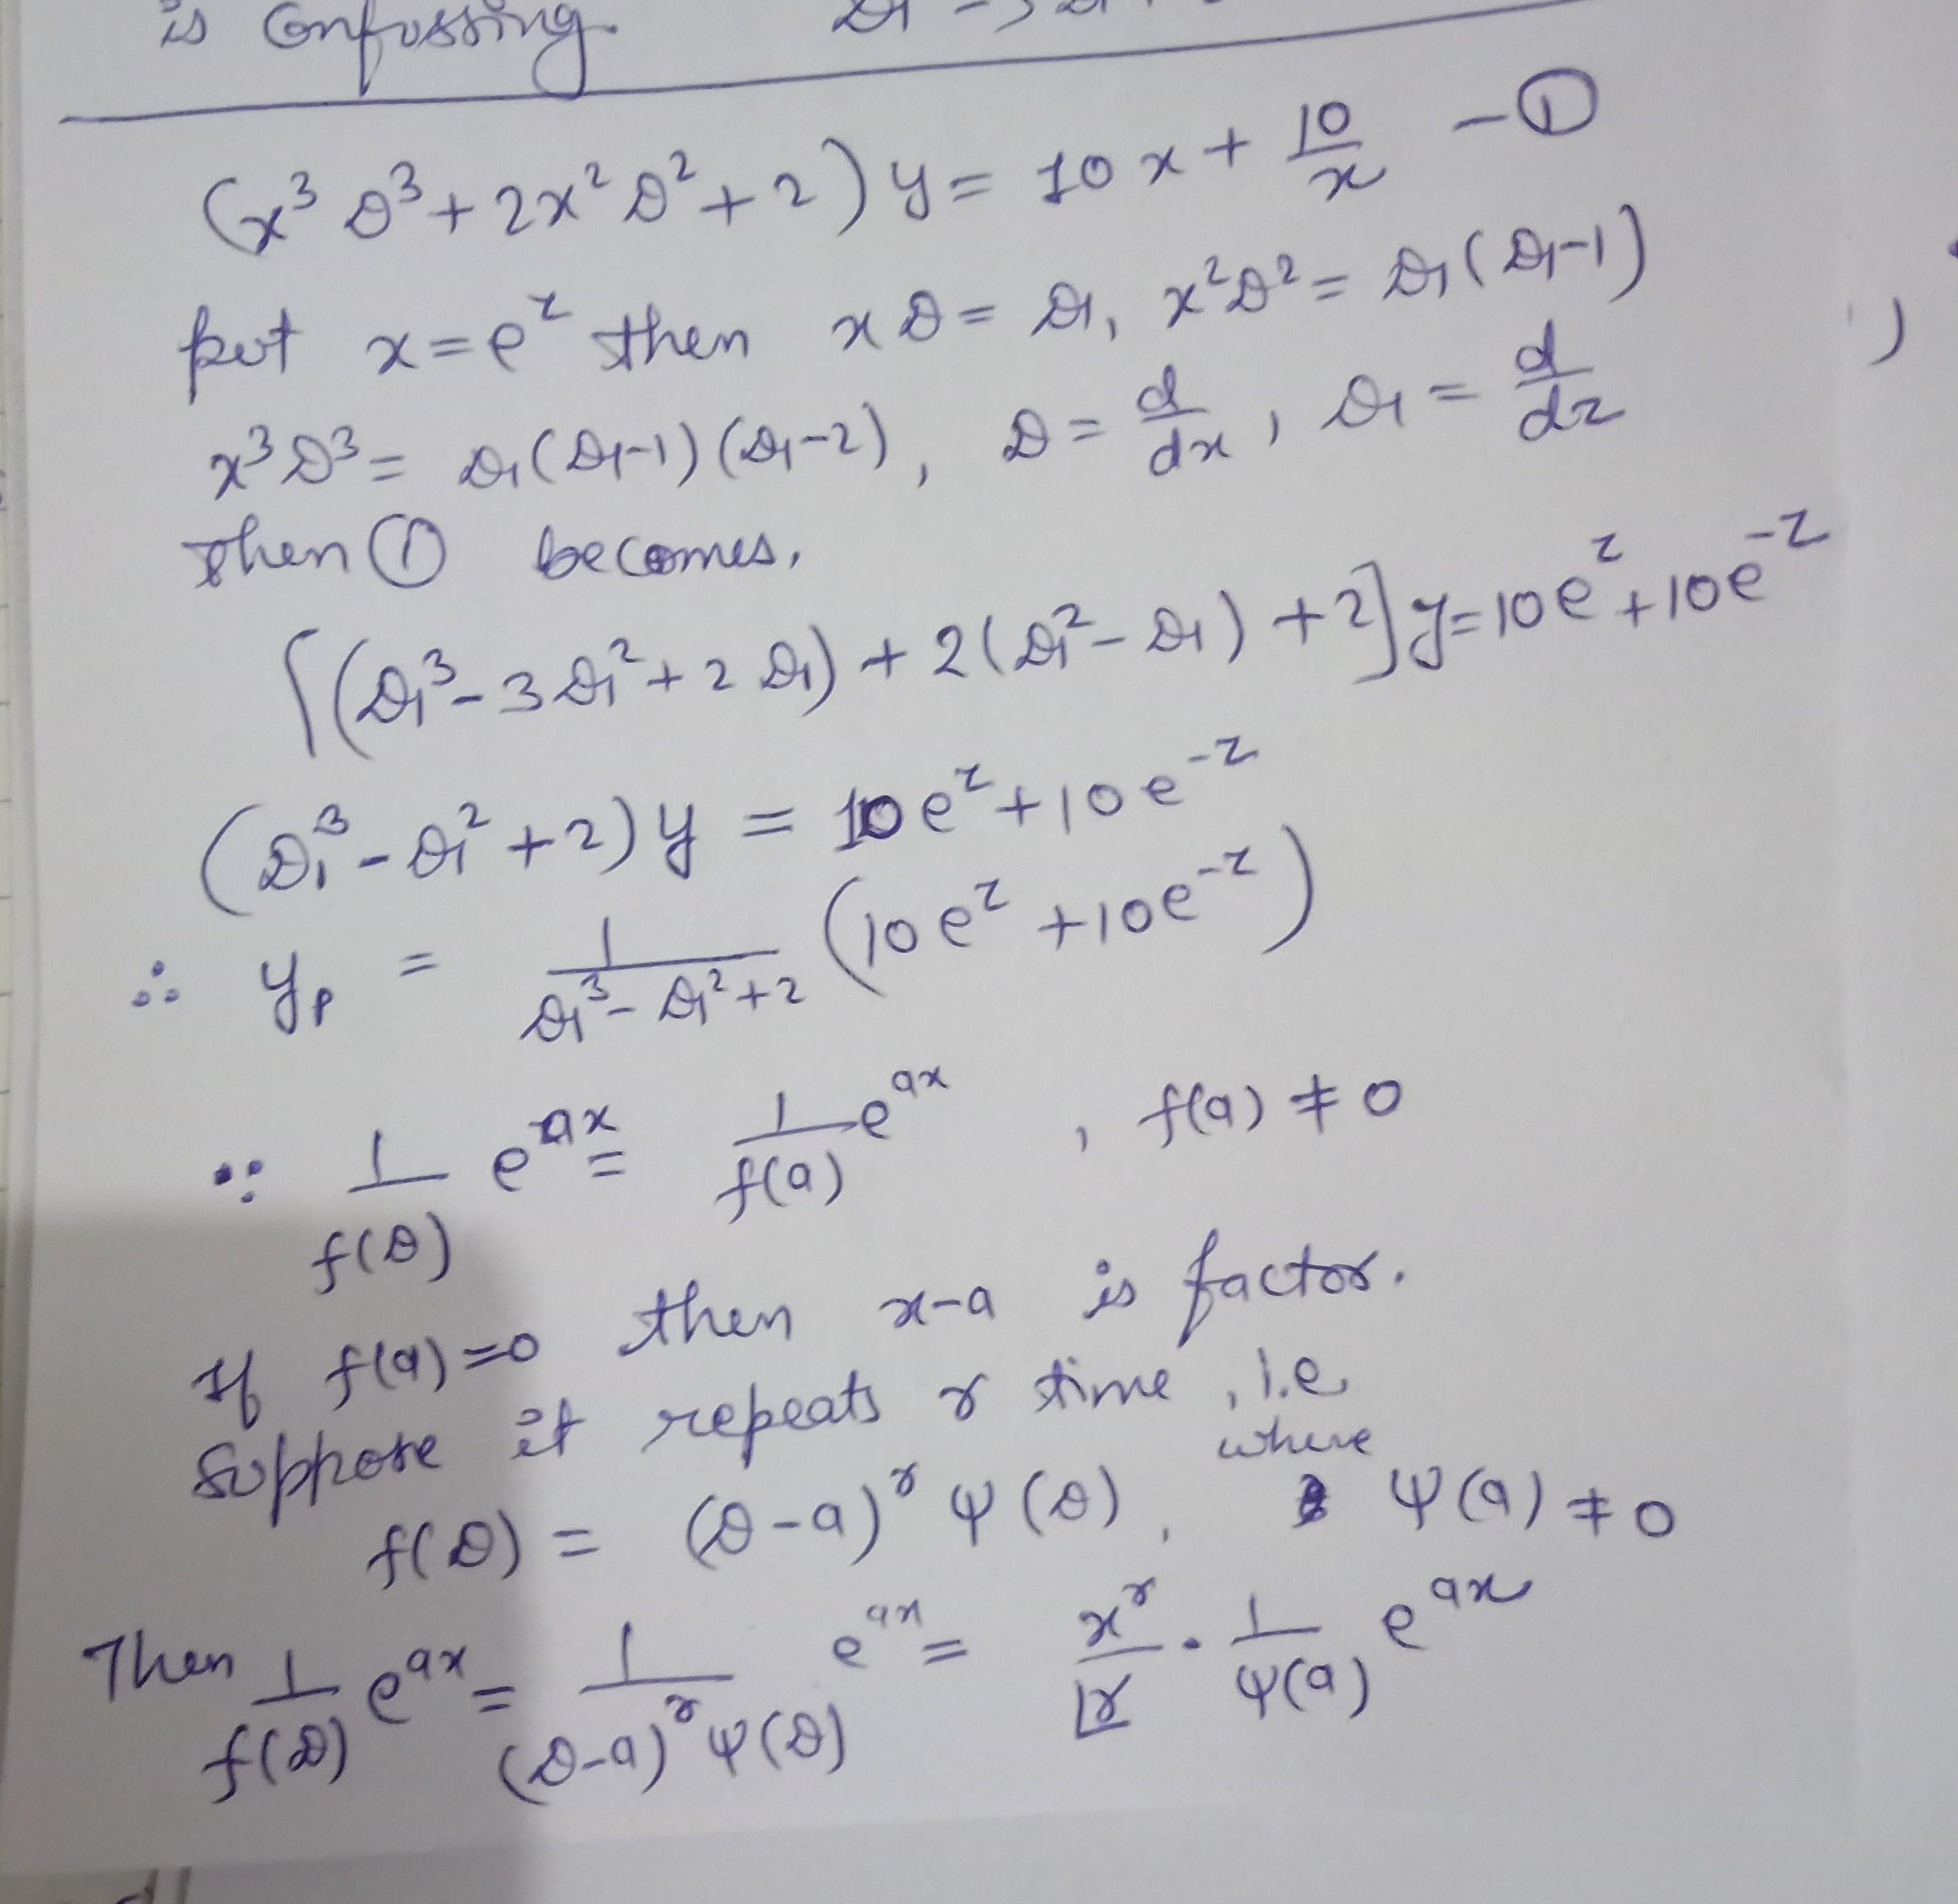 is Confussing.
(x³D³ + 2x²D² + 2) y = 10x + 10/x - ①
put x = e^z then xD = D₁, x²D² = D₁(D₁-1)
x³D³ = D₁(D₁-1)(D₁-2), D = d/dx, D₁ = d/dz
then ① becomes,
[(D₁³ - 3D₁² + 2D₁) + 2(D₁² - D₁) + 2] y = 10e^z + 10e^-z
(D₁³ - D₁² + 2) y = 10e^z + 10e^-z
∴ y_p = 1/(D₁³ - D₁² + 2) (10e^z + 10e^-z)
∵ 1/f(D) e^ax = 1/f(a) e^ax , f(a) ≠ 0
If f(a) = 0 then x-a is factor.
Suppose it repeats r time, i.e
f(D) = (D-a)^r ψ(D), where ψ(a) ≠ 0
Then 1/f(D) e^ax = 1/((D-a)^r ψ(D)) e^ax = x^r/|r · 1/ψ(a) e^ax